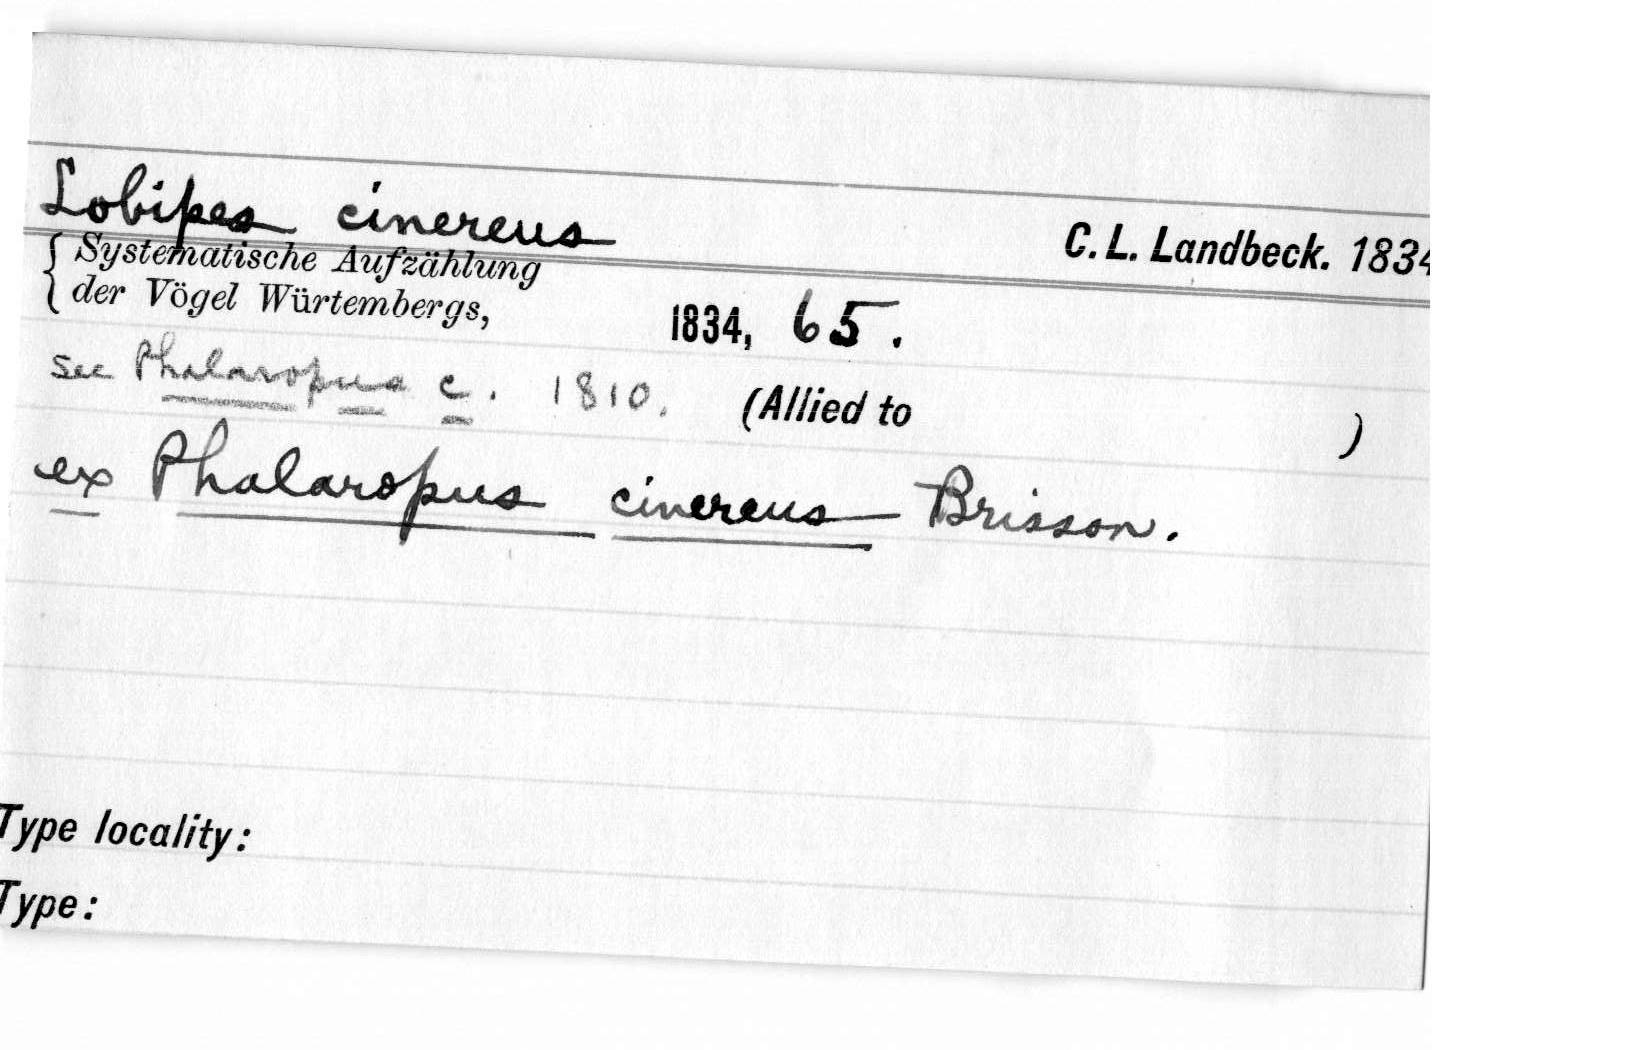 Lobipes cinereus
C. L. Landbeck. 1834
{ Systematische Aufzählung
der Vögel Würtembergs,
1834, 65.
see Phalaropus c. 1810.
(Allied to )
ex Phalaropus cinereus Brisson.
Type locality:
Type: